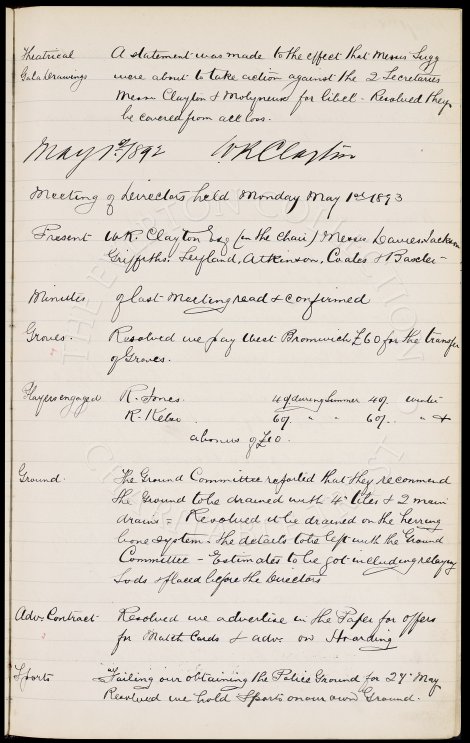 Theatrical A statement was made to the effect that Messrs Sugg
Gala Drawings were about to take action against the 2 Secretaries
Messrs Clayton & Molyneux for libel - Resolved they
be covered from all loss.
May 1st/1892 W R Clayton
Meeting of Directors held Monday May 1st 1893
Present W.R. Clayton Esq (in the chair) Messrs Davies, Jackson
Griffiths, Leyland, Atkinson, Coates & Baxter -
Minutes of last Meeting read & confirmed
Groves. Resolved we pay West Bromwich £60 for the transfer
of Groves.
Players engaged R. Jones. 40/- during Summer 40/- winter
R. Kelso 60/- " " 60/- " &
a bonus of £10.
Ground. The Ground Committee reported that they recommend
the Ground to be drained with 4" tiles & 2 main
drains = Resolved it be drained on the herring
bone system. The details to be left with the Ground
Committee - Estimates to be got including relaying
Sods & placed before the Directors
Adv. Contract Resolved we advertise in the Paper for offers
for Match Cards & adv. on Hoarding
Sports Failing our obtaining the Police Ground for 27" May
Resolved we hold Sports on our own Ground.
THE EVERTON COLLECTION